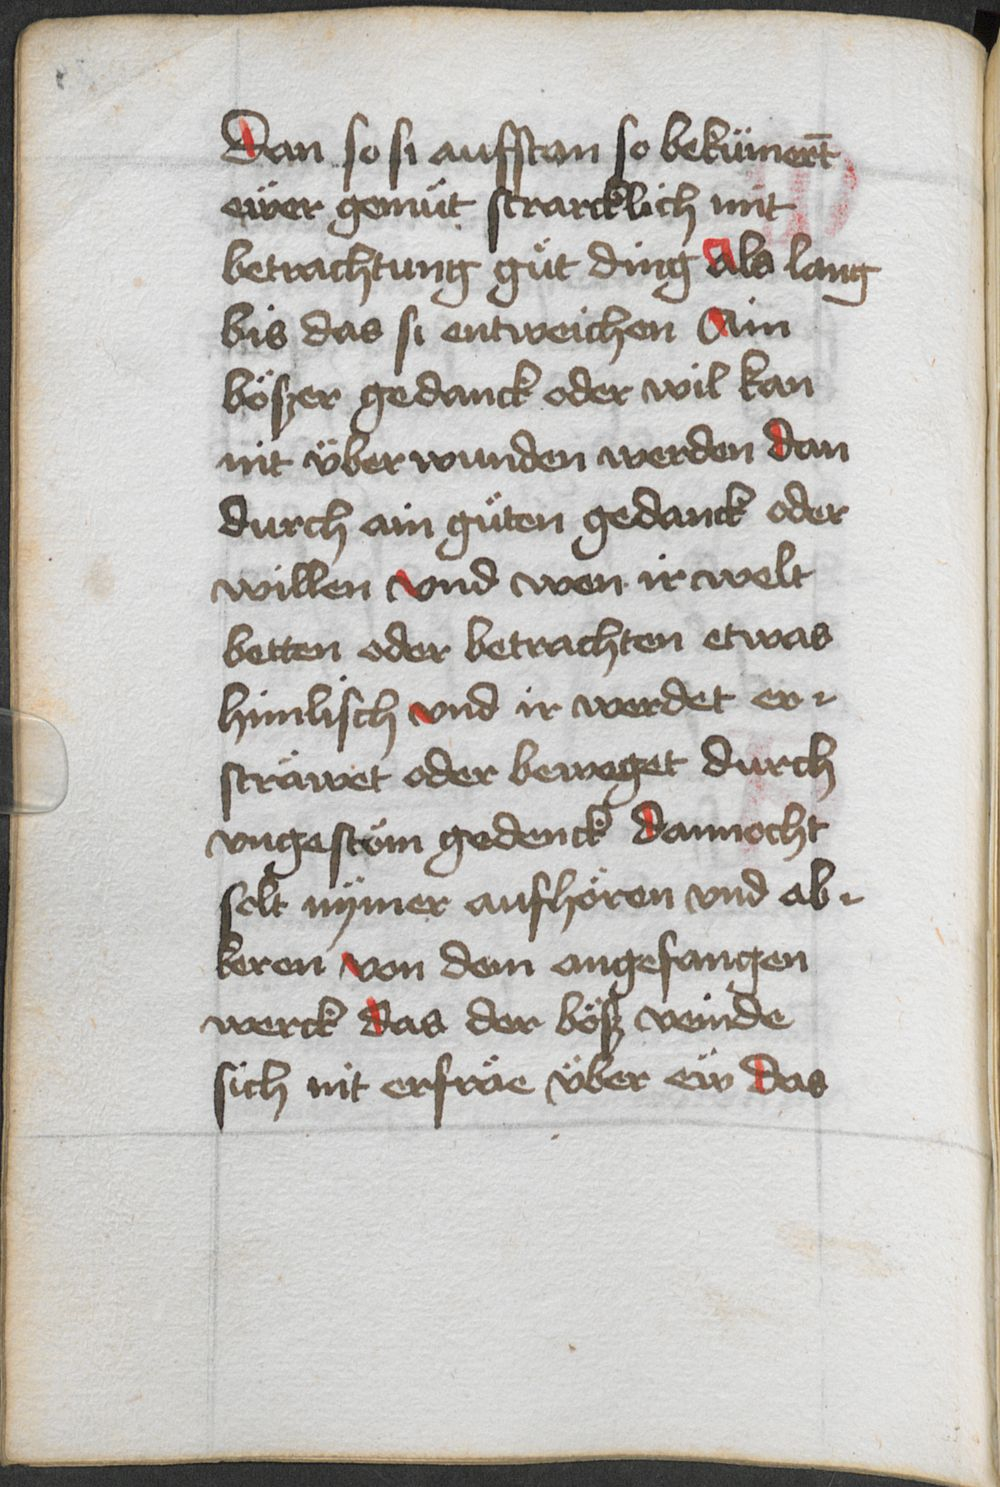 Dan so si aufftan so bekümert̄
eẅer gemüt starcklich mit
betrachtung güt ding Als lang
bis das si entweichen Ain
böszer gedanck oder wil kan
nit über wunden werden dan
durch ain güten gedanck oder
willen vnd wen ir welt
betten oder betrachten etwas
himlisch vnd ir werdet er-
sträwet oder beweget durch
vngestöm gedenck dannocht
solt nÿmer aufhören vnd ab-
keren von dem angefangen
werck das der bösz veinde
sich nit erfräe über eẅ das